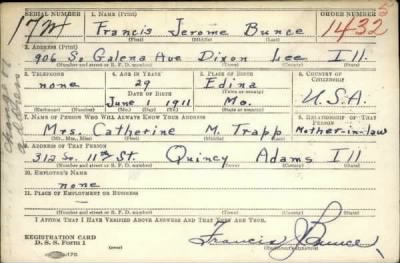 SERIAL NUMBER 1. NAME (Print) ORDER NUMBER
Francis Jerome Bunce 1432
(First) (Middle) (Last)
2. ADDRESS (Print)
906 So Galena Ave Dixon Lee Ill.
(Number and street or R. F. D. number) (Town) (County) (State)
3. TELEPHONE 4. AGE IN YEARS 5. PLACE OF BIRTH 6. COUNTRY OF CITIZENSHIP
none 29 Edina
DATE OF BIRTH
June 1 1911 Mo. U.S.A.
(Exchange) (Number) (Mo.) (Day) (Yr.) (State or country)
7. NAME OF PERSON WHO WILL ALWAYS KNOW YOUR ADDRESS 8. RELATIONSHIP OF THAT PERSON
Mrs. Catherine M. Trapp Mother-in-law
(Mr., Mrs., Miss) (First) (Middle) (Last)
9. ADDRESS OF THAT PERSON
312 So. 11th St. Quincy Adams Ill
(Number and street or R. F. D. number) (Town) (County) (State)
10. EMPLOYER'S NAME
none
11. PLACE OF EMPLOYMENT OR BUSINESS
(Number and street or R. F. D. number) (Town) (County) (State)
I AFFIRM THAT I HAVE VERIFIED ABOVE ANSWERS AND THAT THEY ARE TRUE.
REGISTRATION CARD
D. S. S. Form 1
Francis J Bunce